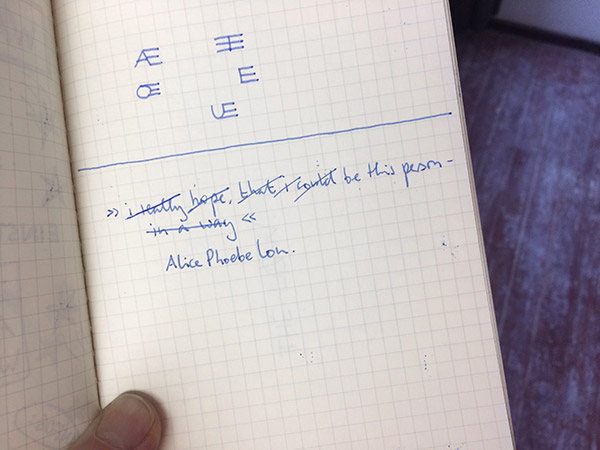 Æ
Œ E
UE
» i really hope, that i could be this person –
in a way «
Alice Phoebe Lou.